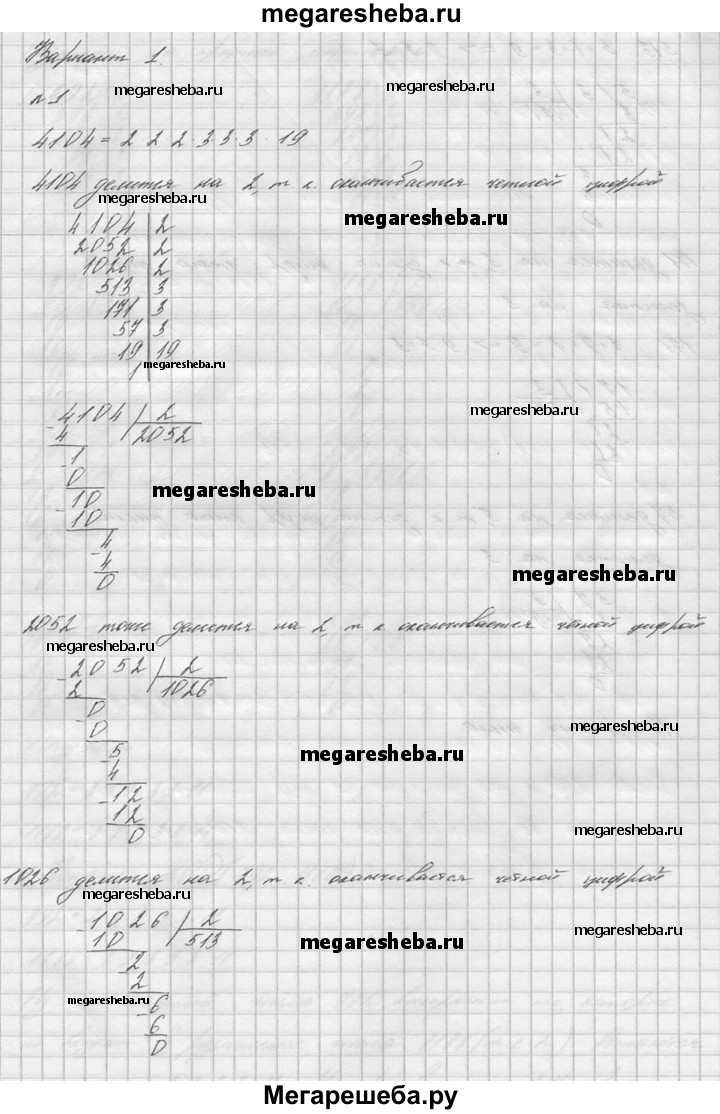 megaresheba.ru
Вариант 1.
megaresheba.ru
megaresheba.ru
№1
4104 = 2 2 2·3·3·3· 19
4104 делится на 2, т к. оканчивается четной цифрой
megaresheba.ru
megaresheba.ru
4104 | 2
2052 | 2
1026 | 2
513 | 3
171 | 3
57 | 3
19 | 19
1 |
megaresheba.ru
megaresheba.ru
4104 | 2
4 2052
1
0
10
10
4
4
0
megaresheba.ru
megaresheba.ru
2052 тоже делится на 2, т к оканчивается четной цифрой
megaresheba.ru
2052 | 2
2 1026
0
0
5
4
12
12
0
megaresheba.ru
megaresheba.ru
megaresheba.ru
1026 делится на 2, т. к. оканчивается четной цифрой
megaresheba.ru
1026 | 2
10 513
2
2
6
6
0
megaresheba.ru
megaresheba.ru
megaresheba.ru
Мегарешеба.ру